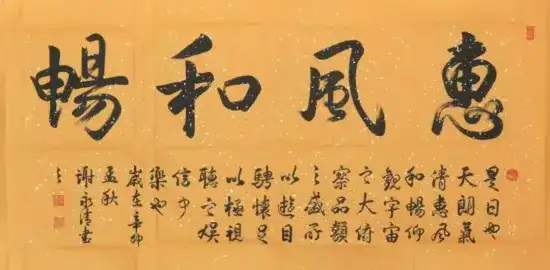 惠風和暢
是日也
天朗氣
清惠風
和暢仰
觀宇宙
之大俯
察品類
之盛所
以遊目
騁懷足
以極視
聽之娛
信可
樂也
歲在辛卯
孟秋
謝永清書
之